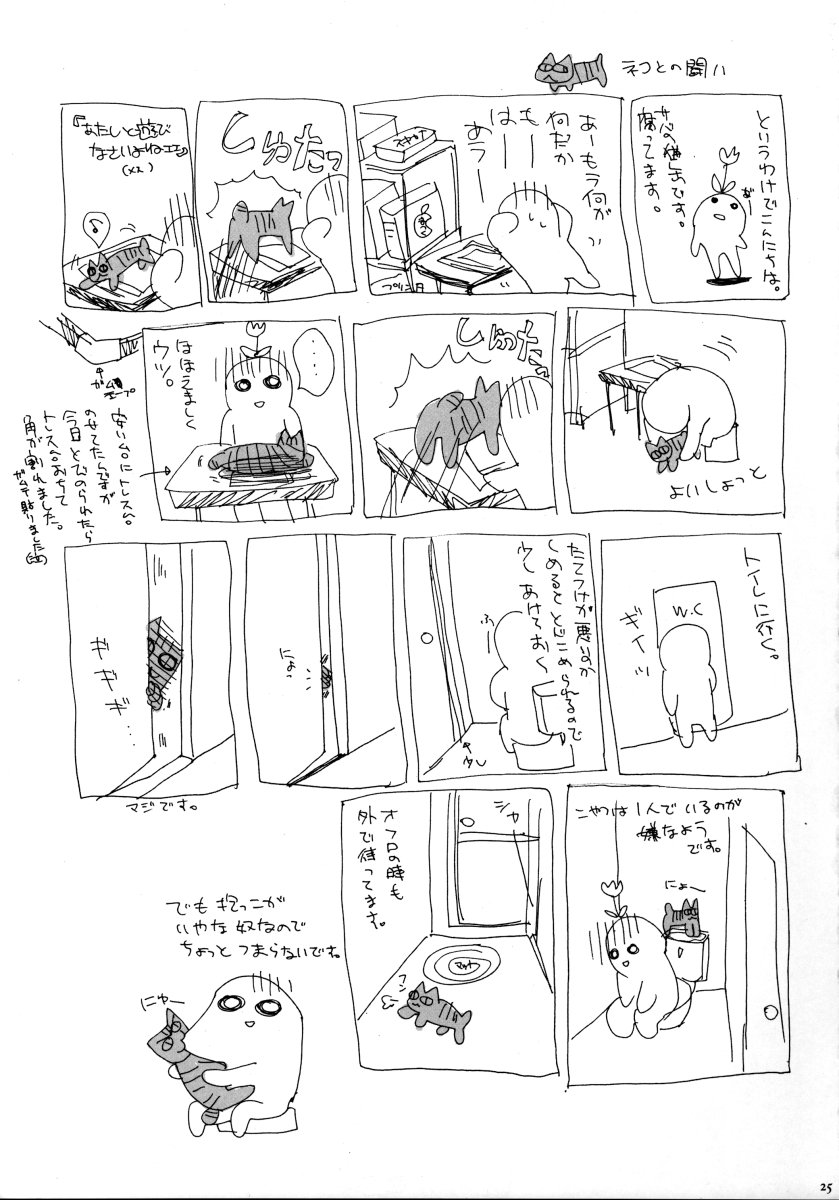 ネコとの闘い
というわけでこんにちは。
サバの猫缶です。
腐ってます。
あー
あーもう何が
何だか
もー
はー
あうー
プリン月
しゅたっ
『あたしと遊び
なさいよねェエ』
(メス)
よいしょっと
しゅたっ
ほほえましく
ウツ。
…
ガムテープ
安い台にトレス台
のせてたんですが
今日とびのられたら
トレス台おちて
角が割れました。
ガムテ貼りました
トイレに行く。
W.C
ギイッ
たてつけが悪いのか
しめるととじこめられるので
少しあけておく
ふー
少し
にょっ
ギギギ…
マジです。
こやつは1人でいるのが
嫌なよう
です。
にょー
シャー
オフロの時も
外で待ってます。
マット
フン
でも抱っこが
いやな奴なので
ちょっとつまらないですね
にゅー
25